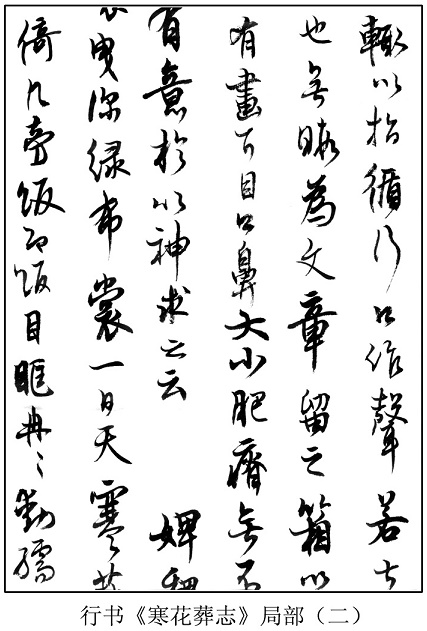 輙以指循行口作聲若
也無暇為文章留之箱以
有畫目口鼻大小肥瘠無不
有意於以神求之云 婢魏
曳深緑布裳一日天寒
倚几旁飯即飯目眶冉〻動孺
行书《寒花葬志》局部（二）